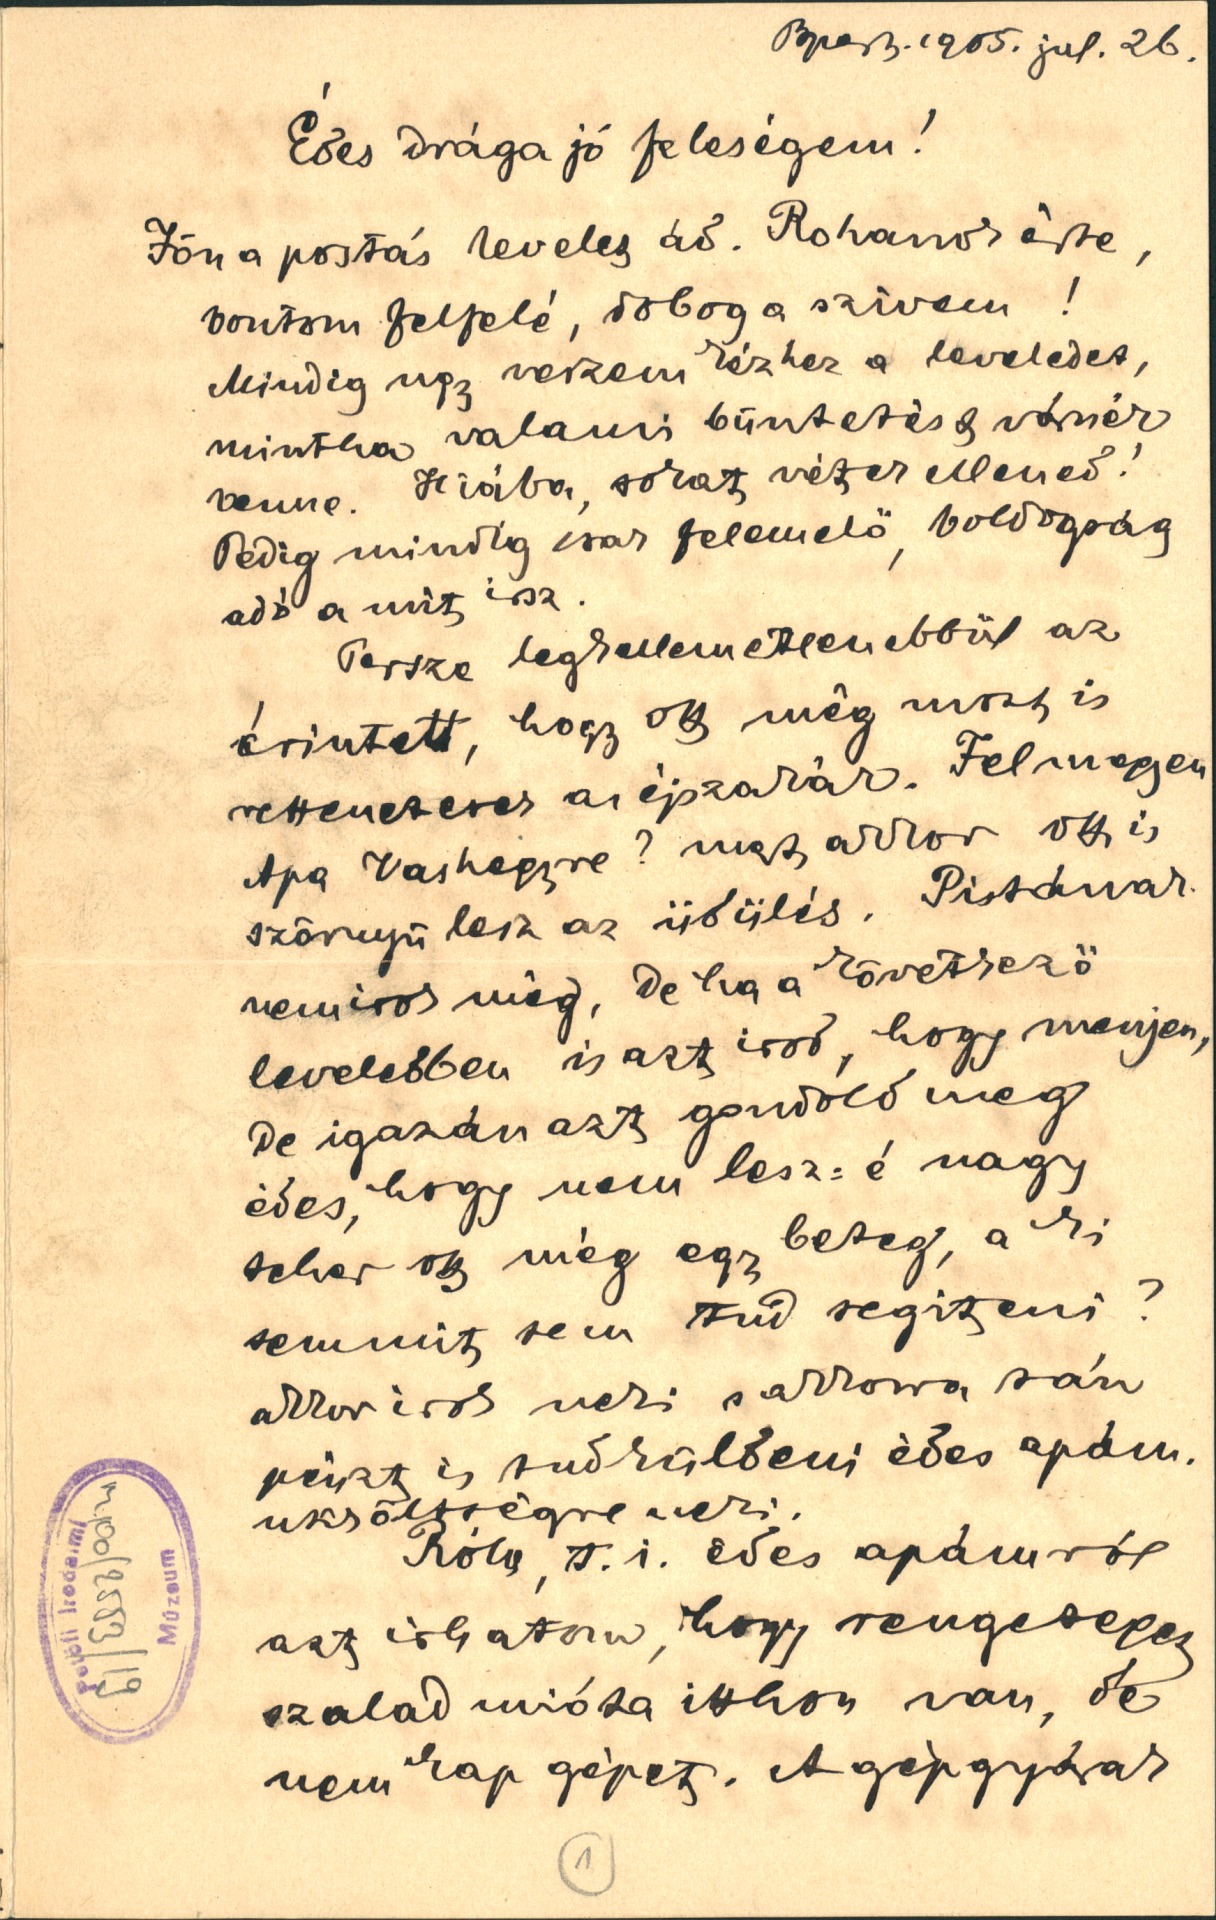 Bpest. 1905. jul. 26.
Édes drága jó feleségem!
Jön a postás levelet ád. Rohanok érte,
bontom felfelé, dobog a szivem!
Mindig ugy veszem kézhez a leveledet,
mintha valami büntetést várnék
benne. Hiába, sokat vétek ellened!
Pedig mindig csak felemelö, boldogság
adó a mit irsz.
Persze legkellemetlenebbül az
érintett, hogy ott még most is
rettenetesek az éjszakák. Felmegyen
Apa Vashegyre? mert akkor ott is
szörnyü lesz az üdülés. Pistának
nem irok még, de ha a következö
leveledben is azt irod, hogy menjen,
de igazán azt gondold meg
édes, hogy nem lesz=é nagy
teher ott még egy beteg, a ki
semmit sem tud segiteni?
akkor irok neki s akkorra tán
pénzt is tud küldeni édes apám.
utiköltségre neki.
Róla, t. i. édes apámról
azt irhatom, hogy rengeteget
szalad mióta itthon van, de
nem kap gépet. A gépgyárak
Petőfi Irodalmi
Múzeum
1